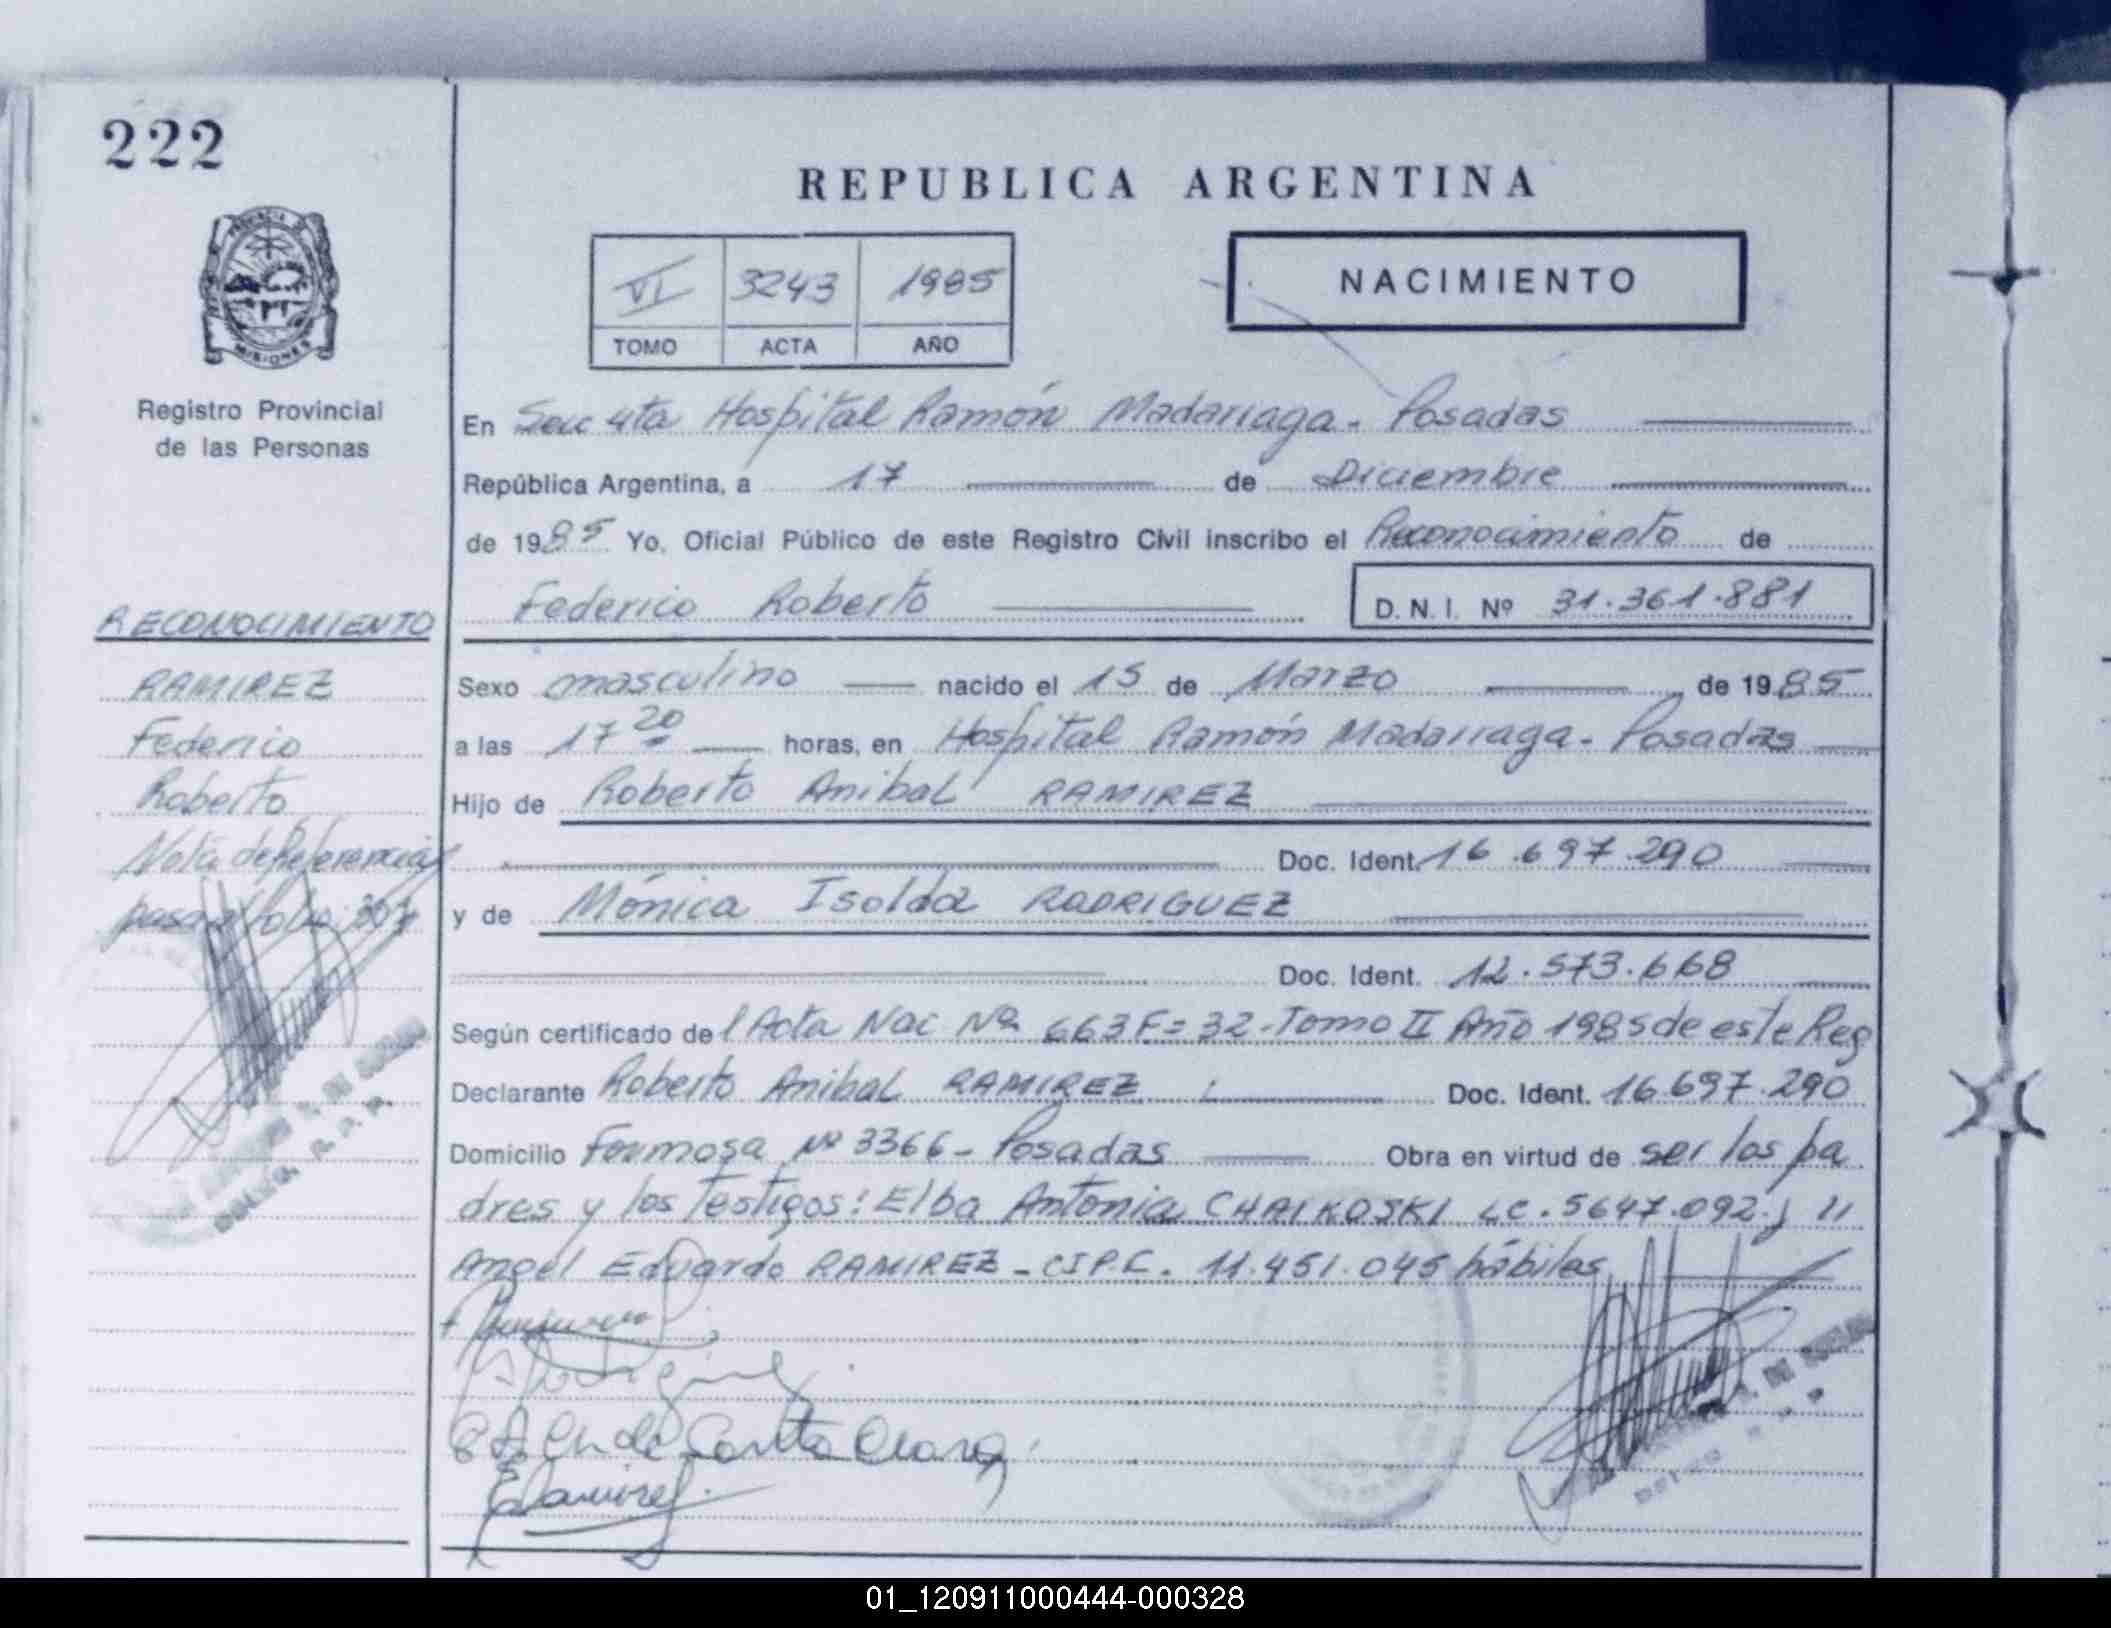 222
REPUBLICA ARGENTINA
VI 3243 1985
TOMO ACTA AÑO
NACIMIENTO
MISIONES
Registro Provincial
de las Personas
En Secc 4ta Hospital Ramón Madariaga - Posadas
República Argentina, a 17 de Diciembre
de 1985 Yo, Oficial Público de este Registro Civil inscribo el Reconocimiento de
Federico Roberto D.N.I. Nº 31.361.881
RECONOCIMIENTO
RAMIREZ
Federico
Roberto
Nota de Referencia
pasa a folio
Sexo masculino nacido el 15 de Marzo de 1985
a las 17 20 horas, en Hospital Ramón Madariaga - Posadas
Hijo de Roberto Anibal RAMIREZ
Doc. Ident. 16.697.290
y de Mónica Isolda RODRIGUEZ
Doc. Ident. 12.573.668
Según certificado del Acta Nac Nº 663 F= 32 - Tomo II Año 1985 de este Reg
Declarante Roberto Anibal RAMIREZ Doc. Ident. 16.697.290
Domicilio Formosa Nº 3366 - Posadas Obra en virtud de ser los pa
dres y los testigos: Elba Antonia CHAIKOSKI LC. 5647.092 y
Angel Eduardo RAMIREZ - CIPC. 11.451.045 hábiles
01_120911000444-000328